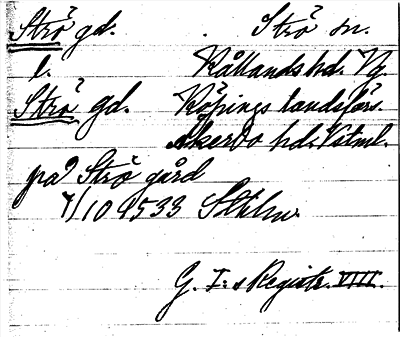 Strö gd. Strö sn.
l. Kållands hd. Vg.
Strö gd. Köpings landsförs.
Åkerbo hd. Vstml.
pa Strö gård
7/10 1533 Sthlm.
G. I:s Registr. VIII.